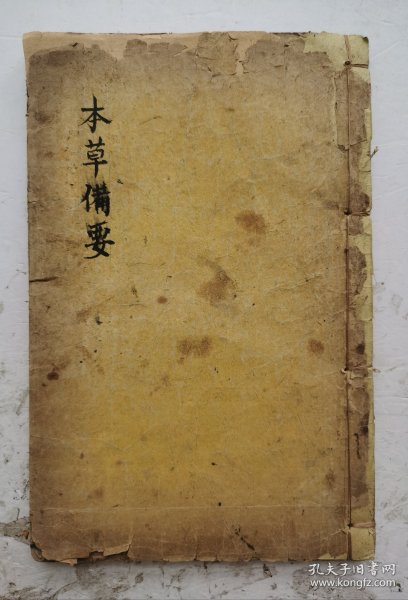 本草備要
孔夫子旧书网
www.kongfz.com